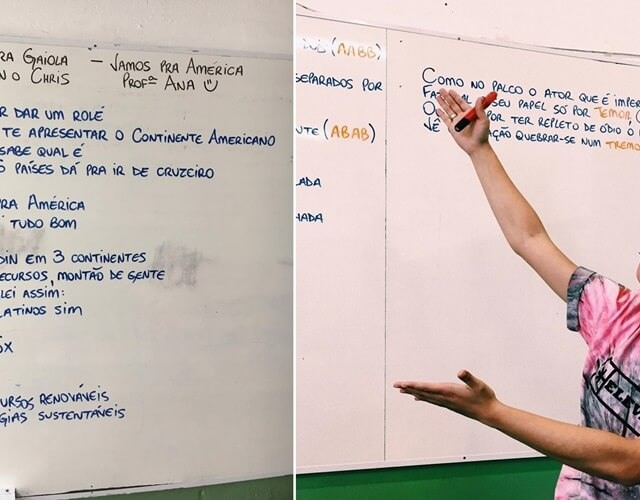 RA GAIOLA - VAMOS PRA AMÉRICA
NO CHRIS PROFª ANA
R DAR UM ROLÉ
TE APRESENTAR O CONTINENTE AMERICANO
SABE QUAL É
PAÍSES DÁ PRA IR DE CRUZEIRO
RA AMÉRICA
TUDO BOM
DIN EM 3 CONTINENTES
ECURSOS, MONTÃO DE GENTE
LEI ASSIM:
LATINOS SIM
RSOS RENOVÁVEIS
GIAS SUSTENTÁVEIS
(AABB)
SEPARADOS POR
NTE (ABAB)
LADA
HADA
COMO NO PALCO O ATOR QUE É IMPER
SEU PAPEL SÓ POR TEMOR
POR TER REPLETO DE ÓDIO O
AÇÃO QUEBRAR-SE NUM TREMO